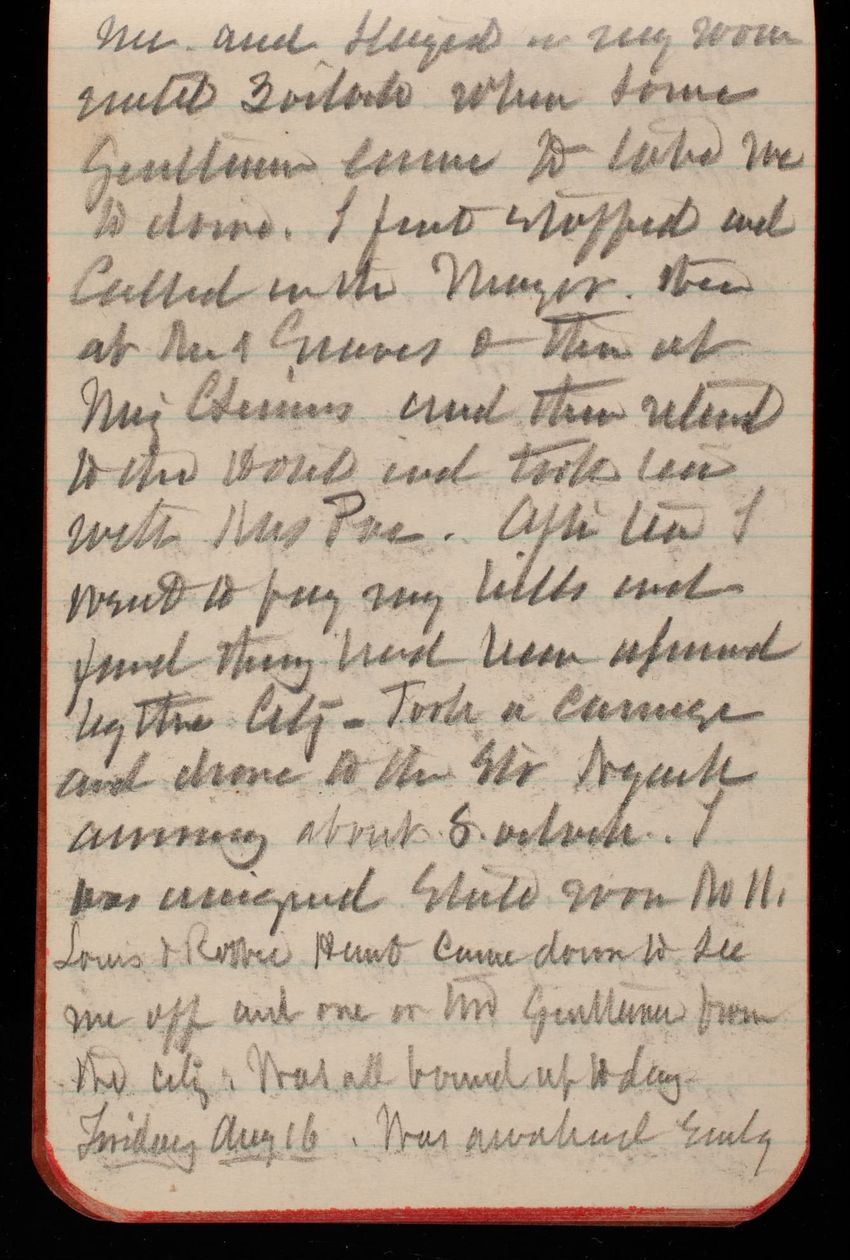 me. and stayed in my room
until 3 oclock when some
Gentlemen came to take me
to drive. I first stopped and
Called on the Mayor. then
at Graves & then at
Maj and then retund
to the Hotel and took tea
with Mrs Poe. After tea I
went to pay my bills and
found they had been assumed
by the City - Took a carriage
and drove to the Str
arriving about 8 oclock. I
was assigned State room No 11.
Louis & Robbie Hunt came down to see
me off and one or two Gentlemen from
the city. Was all bound up to day
Friday Aug 16. Was awakened Early